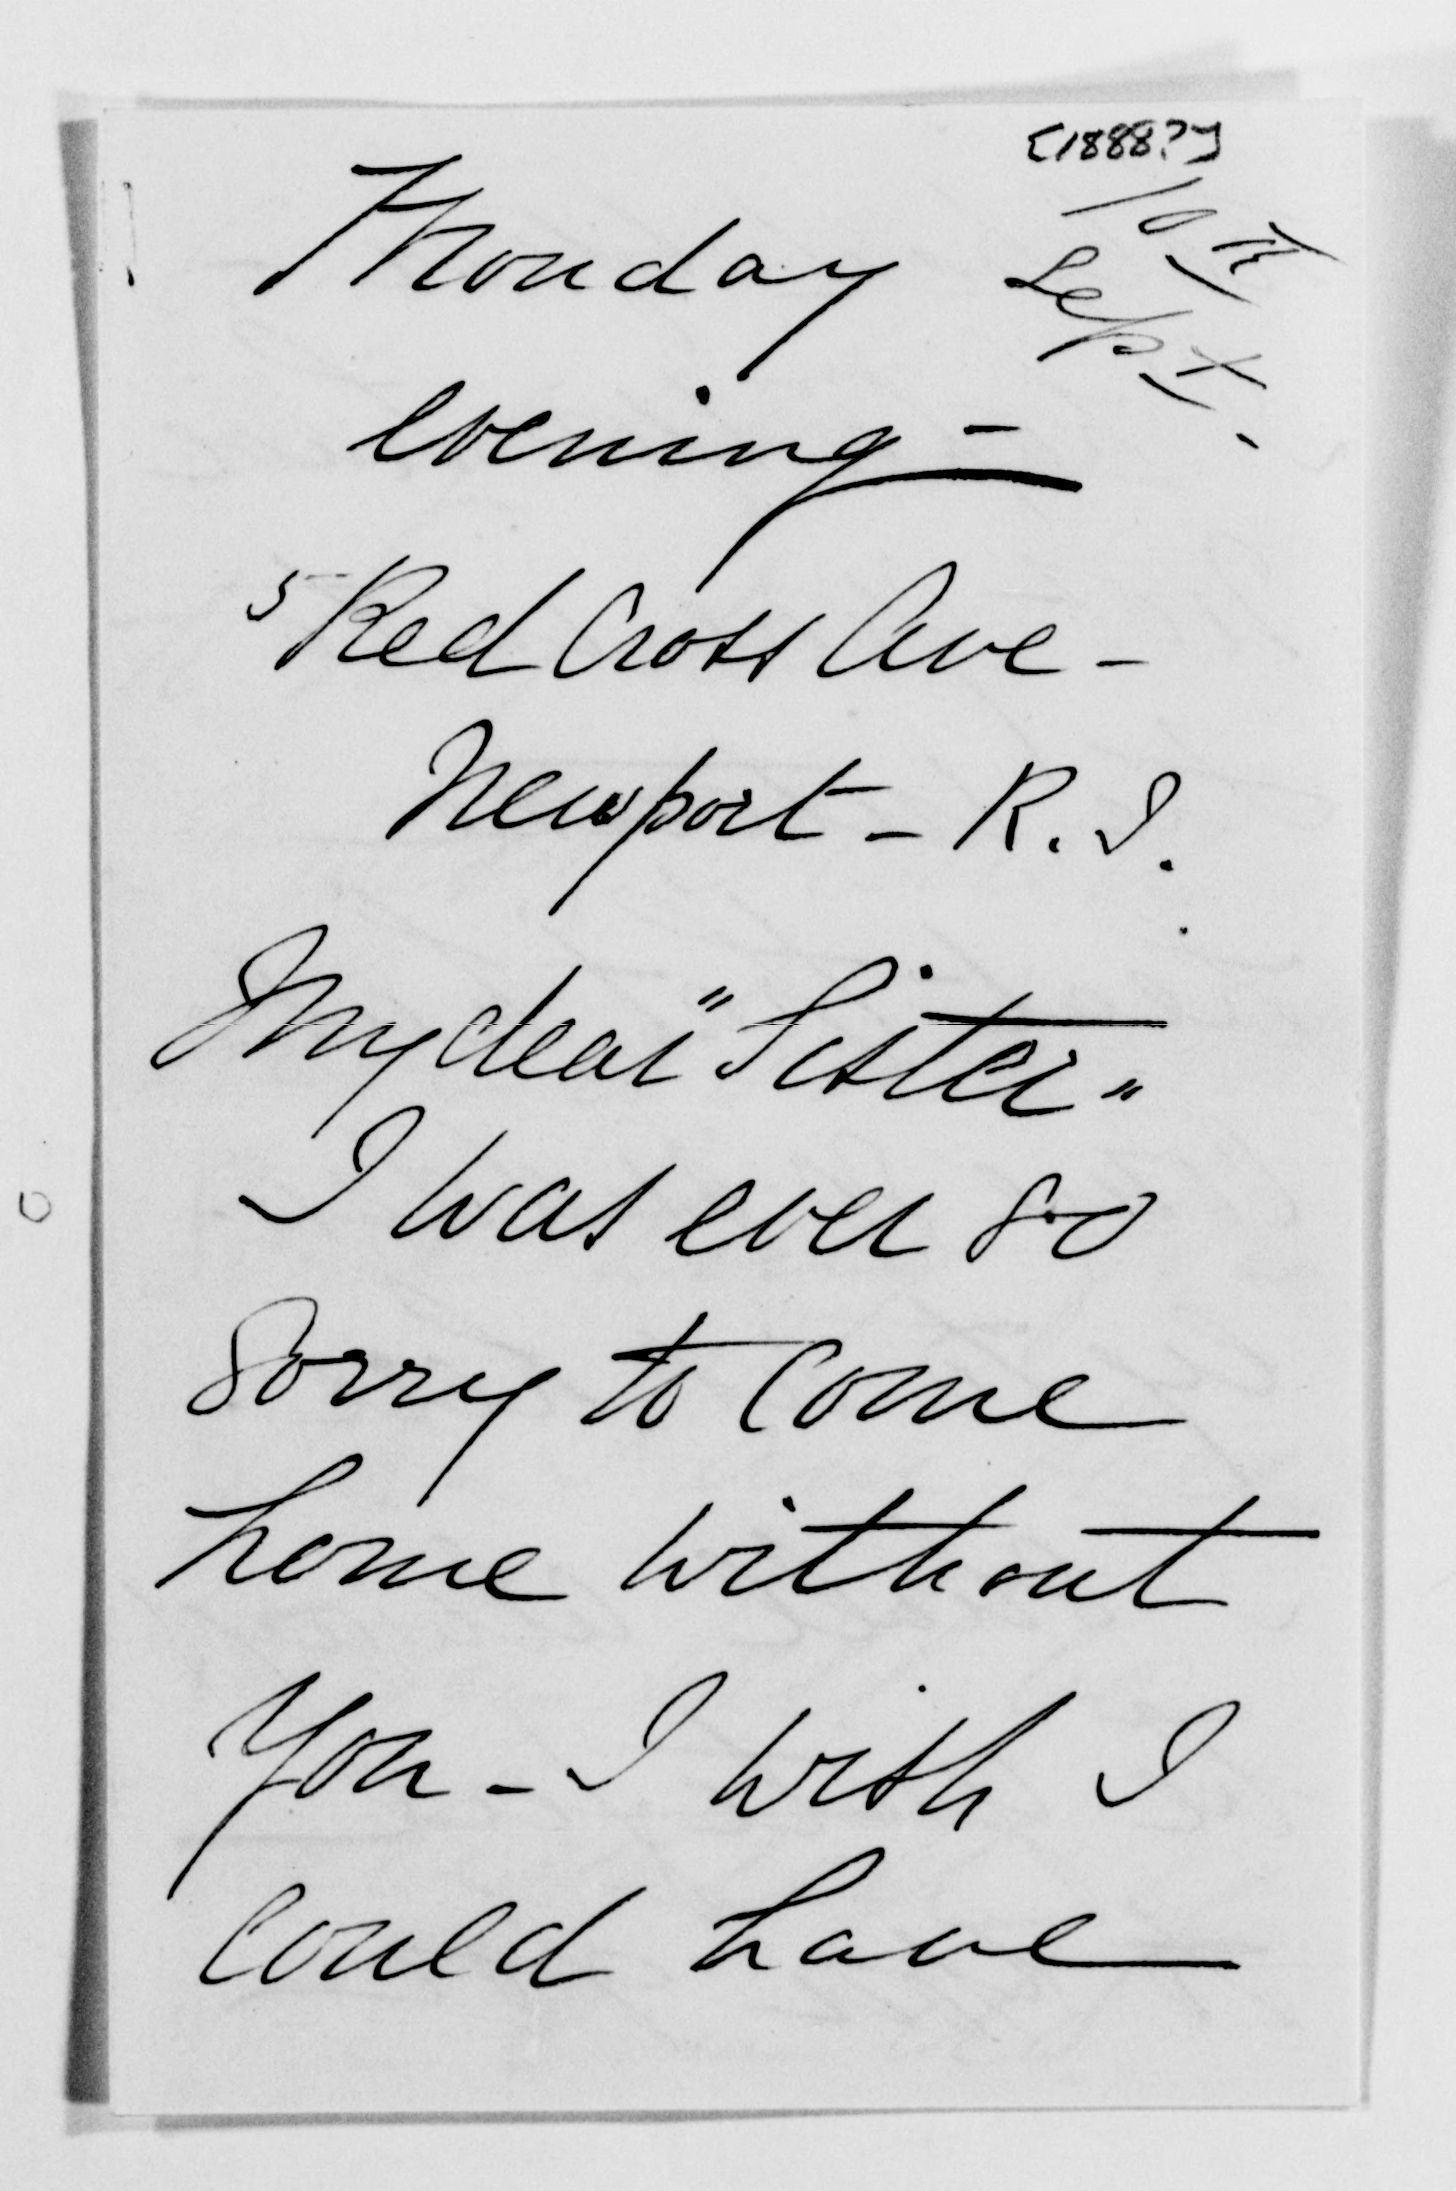 [1888?]
10th
Sept -
Monday
evening -
5 Red Cross Ave -
Newport - R. I.
My dear "Sister"
I was ever so
sorry to come
home without
you - I wish I
could have